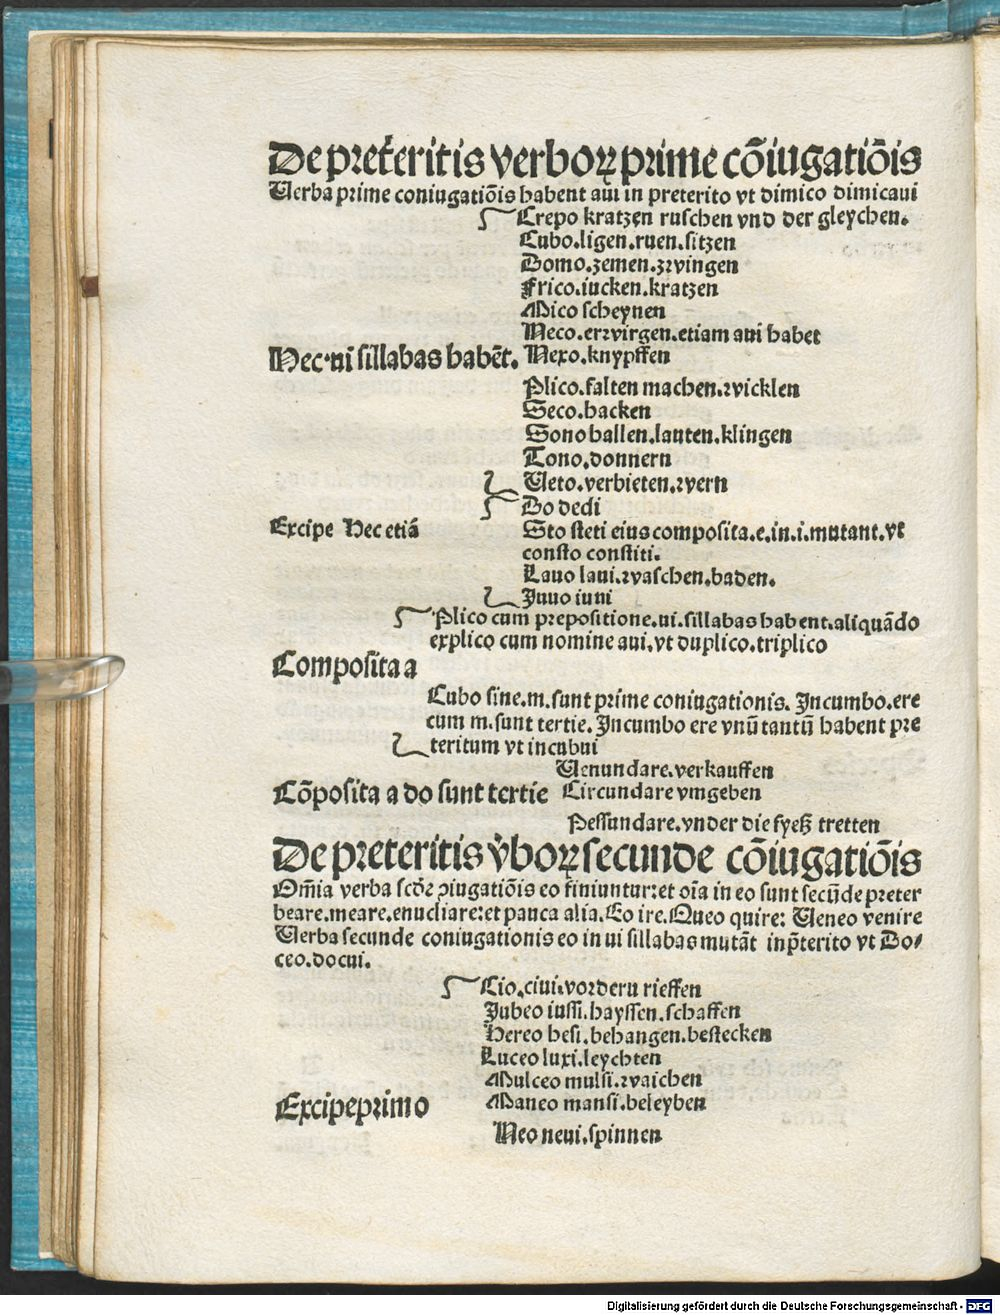 De pret̓eritis verboꝝ prime cõiugatiõis
Verba prime coniugatiõis habent aui in preterito vt dimico dimicaui
Crepo kratzen ruschen vnd der gleychen.
Cubo.ligen.ruen.sitzen
Domo.zemen.zwingen
Frico.iucken.kratzen
Mico scheynen
Neco.erwirgen.etiam aui habet
Hec.ui sillabas habẽt. Nexo.knypffen
Plico.falten machen.wicklen
Seco.hacken
Sono hallen.lauten.klingen
Tono.donnern
Veto.verbieten.wern
Do dedi
Excipe Hec etiã Sto steti eius composita.e.in.i.mutant.vt
consto constiti.
Lauo laui.waschen.baden.
Juuo iuui
Plico cum prepositione.ui.sillabas habent.aliquãdo
explico cum nomine aui.vt duplico.triplico
Composita a
Cubo sine.m.sunt prime coniugationis. Incumbo.ere
cum m.sunt tertie. Incumbo ere vnũ tantũ habent pre
teritum vt incubui
Venundare.verkauffen
Cõposita a do sunt tertie Circundare vmgeben
Pessundare.vnder die fyeß tretten
De preteritis v̓boꝝ secunde cõiugatiõis
Om̃ia verba scðe ꝯiugatiõis eo finiuntur:et oĩa in eo sunt secũde preter
beare.meare.enucliare:et pauca alia.Eo ire.Queo quire: Veneo venire
Verba secunde coniugationis eo in ui sillabas mutãt in p̃terito vt Do⸗
ceo.docui.
Cio.ciui.vordern rieffen
Jubeo iussi.hayssen.schaffen
Hereo hesi.behangen.bestecken
Luceo luxi.leychten
Mulceo mulsi.waichen
Excipe primo Maneo mansi.beleyben
Neo neui.spinnen
Digitalisierung gefördert durch die Deutsche Forschungsgemeinschaft - DFG